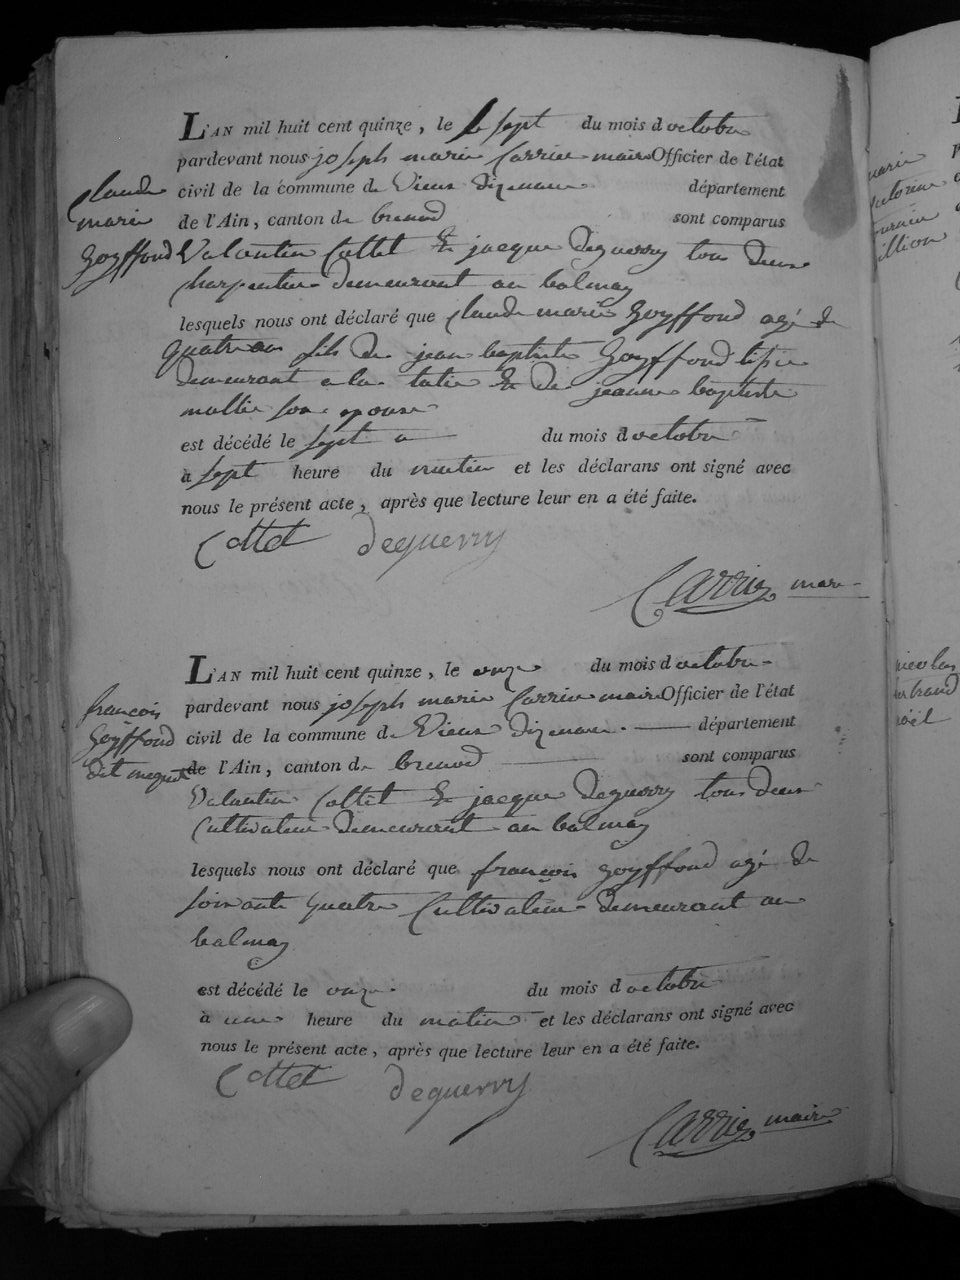 L'AN mil huit cent quinze, le sept du mois d octobre
pardevant nous joseph marie Carrier maire Officier de l'état
claude
marie
Goyffond
civil de la commune de Vieux Dizenave département
de l'Ain, canton de brenod sont comparus
Valentin Cottet Et jacque Deguerry tous deux
charpentier demeurant au balmay
lesquels nous ont déclaré que claude marie Goyffond agé de
quatre ans fils de jean baptiste Goyffond
demeurant a la Et De jeanne baptiste
son epouse
est décédé le sept du mois d octobre
à sept heure du matin et les déclarans ont signé avec
nous le présent acte, après que lecture leur en a été faite.
Cottet deguerry
Carrier maire
L'AN mil huit cent quinze, le onze du mois d octobre
pardevant nous joseph marie Carrier maire Officier de l'état
francois
Goyffond
dit
civil de la commune de Vieux Dizenave département
de l'Ain, canton de brenod sont comparus
Valentin Cottet Et jacque Deguerry tous deux
Cultivateur demeurant au balmay
lesquels nous ont déclaré que françois goyffond agé de
soixante quatre Cultivateur demeurant au
balmay
est décédé le onze du mois d octobre
à une heure du matin et les déclarans ont signé avec
nous le présent acte, après que lecture leur en a été faite.
Cottet deguerry
Carrier maire
marie
nicolas